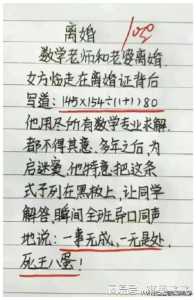 离婚
100
数学老师和老婆离婚,
女方临走在离婚证背后
写道: 1145×154÷(1+1)80
他用尽所有数学专业求解
都不得其意。多年之后,为
启迷爱,他特意把这条
式子列在黑板上,让同学
解答,瞬间全班异口同声
地说: 一事无成,一无是处,
死王八蛋!